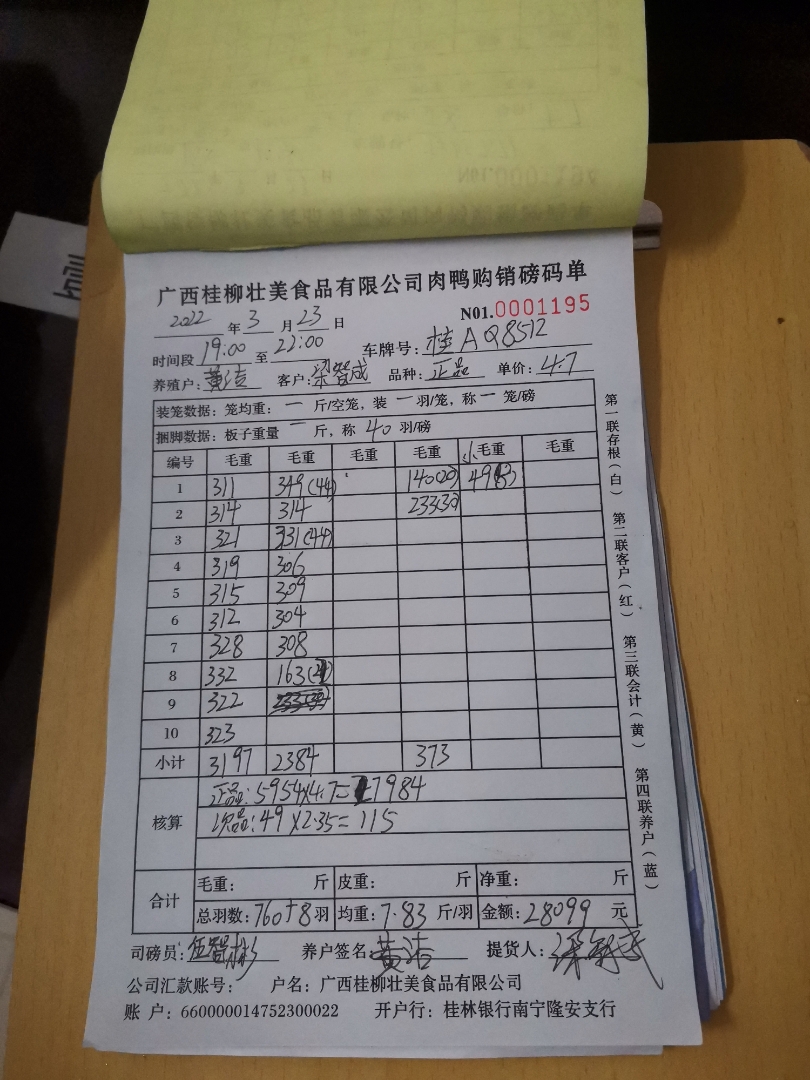 广西桂柳壮美食品有限公司肉鸭购销磅码单
N01.0001195
2022 年 3 月 23 日
时间段 19:00 至 22:00 车牌号: 桂AQ8512
养殖户: 黄洁 客户: 梁智成 品种: 正品 单价: 4.7
装笼数据: 笼均重: 一 斤/空笼, 装 一 羽/笼, 称 一 笼/磅
捆脚数据: 板子重量 一 斤, 称 40 羽/磅
编号 毛重 毛重 毛重 毛重 小毛重 毛重
1 311 349(44) 140(20) 49(13)
2 314 314 233(30)
3 321 331(44)
4 319 306
5 315 309
6 312 304
7 328 308
8 332 163(21)
9 322
10 323
小计 3197 2384 373
核算
正品: 5954×4.7=27984
次品: 49×2.35=115
合计
毛重: 斤 皮重: 斤 净重: 斤
总羽数: 760+8 羽 均重: 7.83 斤/羽 金额: 28099 元
司磅员: 养户签名: 黄洁 提货人: 梁智成
公司汇款账号: 户名: 广西桂柳壮美食品有限公司
账 户: 660000014752300022 开户行: 桂林银行南宁隆安支行
第一联存根(白) 第二联客户(红) 第三联会计(黄) 第四联养户(蓝)